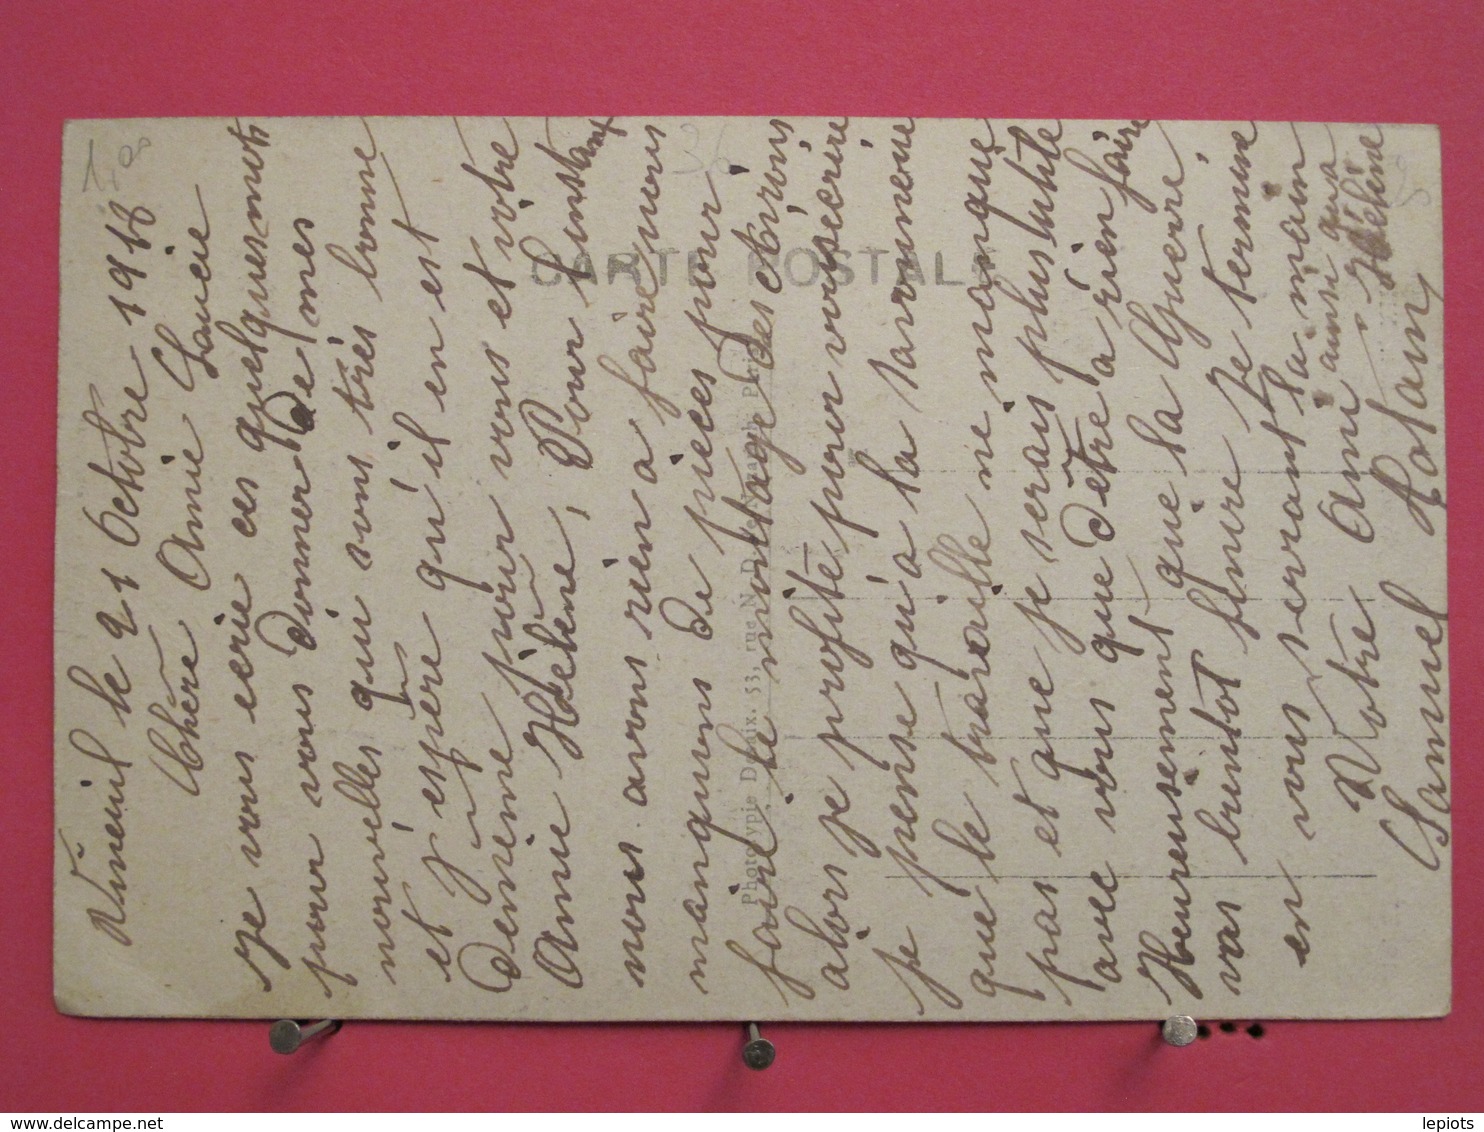 Vineuil le 21 Octobre 1918
Chère Amie Lucie
Je vous ecrie ces quelques mots
pour vous donner de mes
nouvelles qui sont très bonne
et j'espère qu'il en est
de même pour vous et votre
Amie Hélène, Pour l'instant
nous avons rien a faire nous
manquons de pièces pour
faire le montage des avions
alors je profite pour vous écrire
je pense qu'a la
que le travaille ne manque
pas et que je serais plus utile
avec vous que d'être a rien faire
Heureusement que la Guerre
vas bientot finire Je termine
en vous serrant la main
Votre Ami ainsi qu'a Hélène
Samuel Rotan
CARTE POSTALE
Phototypie Deaix, 53, rue N. D. de Nazareth, Paris
1,00
36
20
delcampe.net
lepiots